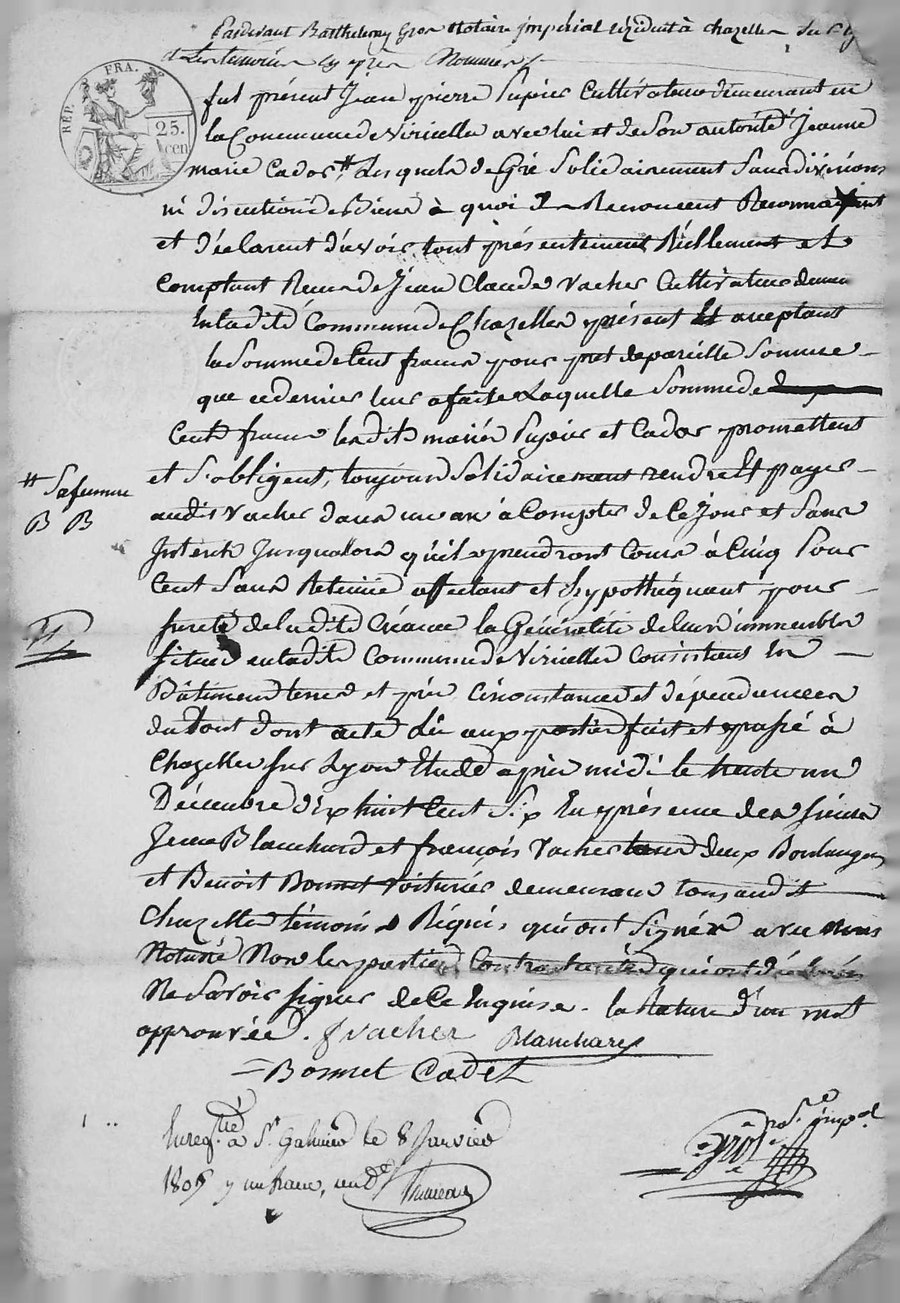 Pardevant Barthelemy Gros Notaire impérial résidant à chazelles sur
et les temoins cy après Nommés
RÉP. FRA.
25. cen
fut présent Jean pierre Cultivateur demeurant en
la Commune de Viricelle avec lui et de son autorité Jeanne
marie Cados # Lesquels de Gré Solidairement Sans divisions
ni discution de Biens à quoi Renoncent Reconnaissent
et déclarent d'avoir tout présentement Réellement et
Comptant Recu de Jean Claude Vacher Cultivateur
En ladite Commune de Chazelles présent et acceptant
la Somme de Cent francs pour pret de pareille Somme
que ce dernier leur a faite Laquelle Somme de
Cent francs lesdits mariés et Cados promettent
et S'obligent, toujours Solidairement rendre et payer
# Sa femme
B B
audit Vacher dans un an à Compter de Ce jour et Sans
Interets Jusqualors qu'ils prendront Cours à Cinq pour
Cent Sans Retenue affectant et hypothéquant pour
sureté de ladite Créance la Généralité de leurs immeubles
situés en ladite Commune de Viricelles Consistant En
Bâtiments terres et près Circonstances et dépendances
du tout dont acte aux parties fait et passé à
Chazelles sur Lyon Etude après midi le trente un
Décembre dix huit Cent Six En présence des Sieurs
Jean Blanchard et françois Vacher tous deux Boulangers
et Benoit Bonnet Voiturier demeurans tous audit
Chazelles témoins Réquis qui ont Signés avec nous
Notaire Non les parties Contractantes qui ont déclarés
Ne Savoir signer de Ce Enquise. la Rature d'un mot
approuvée. f vacher Blanchard
Bonnet Cadet
Enreg.tré à St Galmier le 8 Janvier
Gros No.re imp.al
180 un franc,